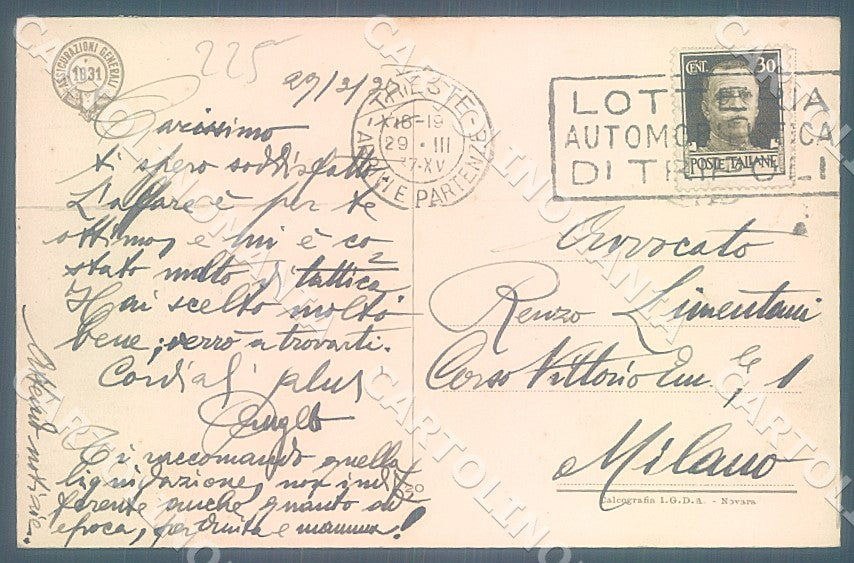 225
ASSICURAZIONI GENERALI
1831
29/3/37
TRIESTE
18-19
29 · III
37-XV
ARRIVI E PARTENZE
CENT. 30
POSTE ITALIANE
LOTTERIA
AUTOMOBILISTICA
DI TRIPOLI
Carissimo
ti spero soddisfatto
L'affare è per te
ottimo, e mi è co
stato molto di tattica
Hai scelto molto
bene; verrò a trovarti.
Cordial
Ti raccomando quella
liquidazione, non indif
ferente anche quanto ad
epoca,
Attendo notizie.
Avvocato
Renzo Limentani
Corso Vittorio Em. le 1
Milano
Calcografia I.G.D.A. - Novara
CARTOLINOMANIA